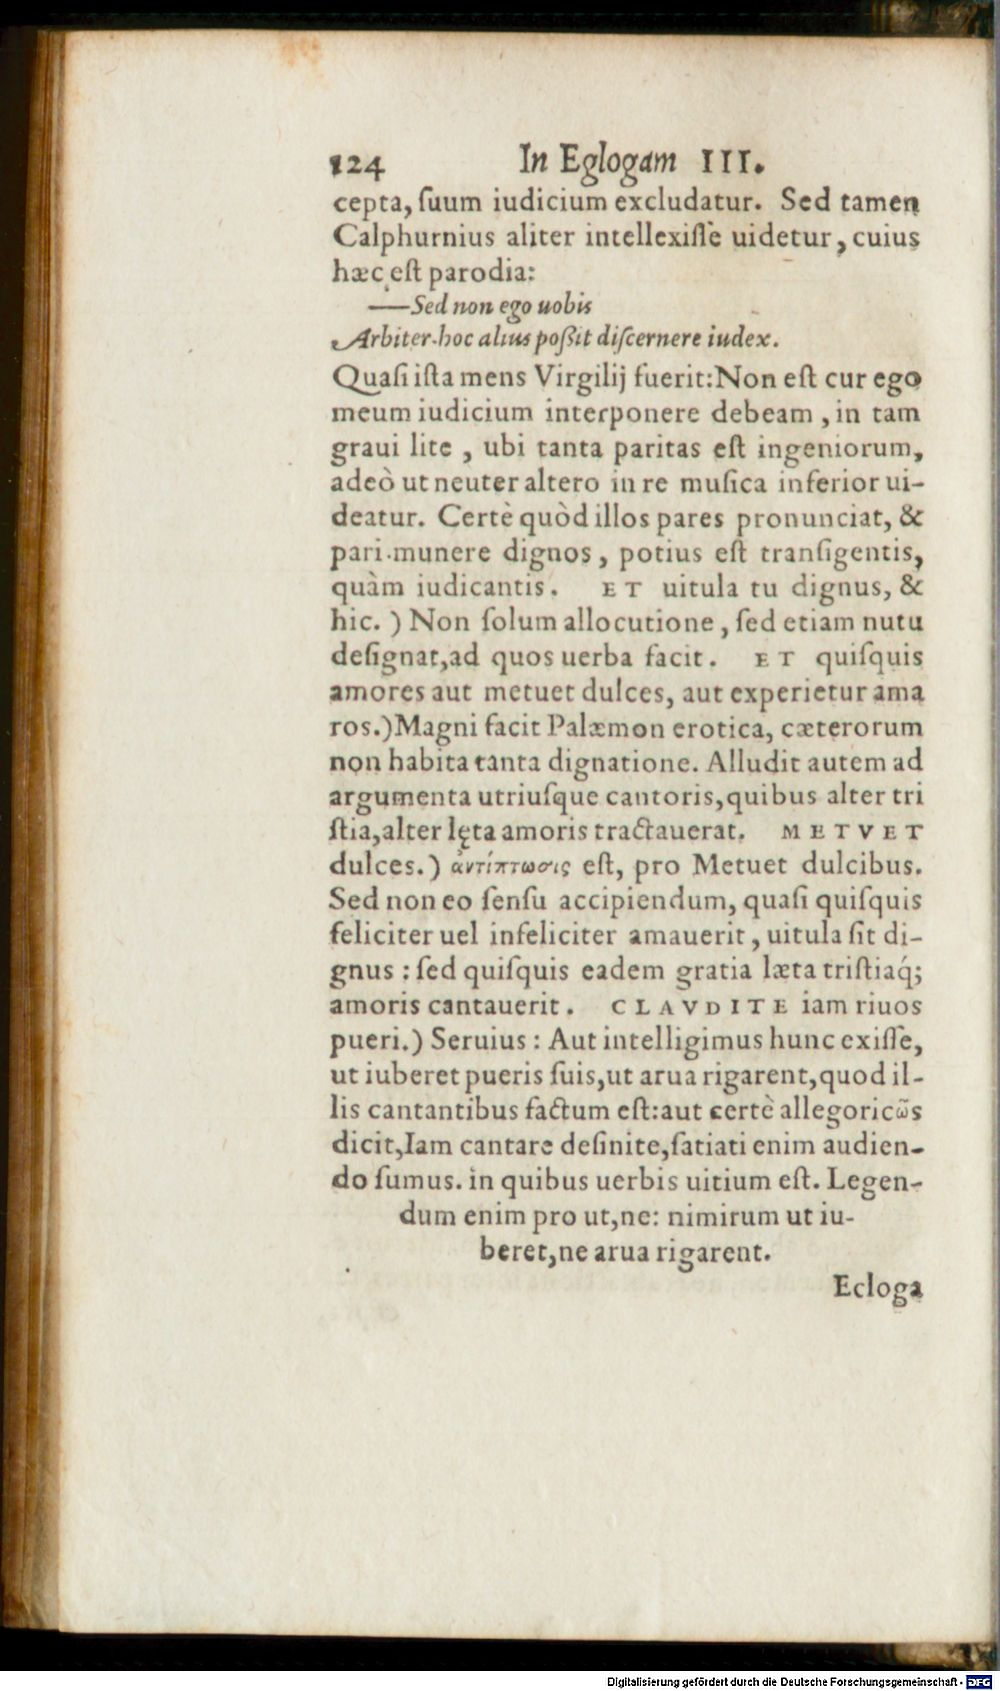 124 In Eglogam III.
cepta, ſuum iudicium excludatur. Sed tamen
Calphurnius aliter intellexiſſe uidetur, cuius
hæc eſt parodia:
—Sed non ego uobis
Arbiter. hoc alius poßit diſcernere iudex.
Quaſi iſta mens Virgilij fuerit: Non eſt cur ego
meum iudicium interponere debeam, in tam
graui lite, ubi tanta paritas eſt ingeniorum,
adeò ut neuter altero in re muſica inferior ui-
deatur. Certè quòd illos pares pronunciat, &
pari munere dignos, potius eſt tranſigentis,
quàm iudicantis. ET uitula tu dignus, &
hic.) Non ſolum allocutione, ſed etiam nutu
deſignat, ad quos uerba facit. ET quiſquis
amores aut metuet dulces, aut experietur ama
ros.) Magni facit Palæmon erotica, cæterorum
non habita tanta dignatione. Alludit autem ad
argumenta utriuſque cantoris, quibus alter tri
ſtia, alter lęta amoris tractauerat. METVET
dulces.) ἀντίπτωσις eſt, pro Metuet dulcibus.
Sed non eo ſenſu accipiendum, quaſi quiſquis
feliciter uel infeliciter amauerit, uitula ſit di-
gnus: ſed quiſquis eadem gratia læta triſtiaq́;
amoris cantauerit. CLAVDITE iam riuos
pueri.) Seruius: Aut intelligimus hunc exiſſe,
ut iuberet pueris ſuis, ut arua rigarent, quod il-
lis cantantibus factum eſt: aut certè allegoricῶs
dicit, Iam cantare deſinite, ſatiati enim audien-
do ſumus. in quibus uerbis uitium eſt. Legen-
dum enim pro ut, ne: nimirum ut iu-
beret, ne arua rigarent.
Ecloga
Digitalisierung gefördert durch die Deutsche Forschungsgemeinschaft - DFG